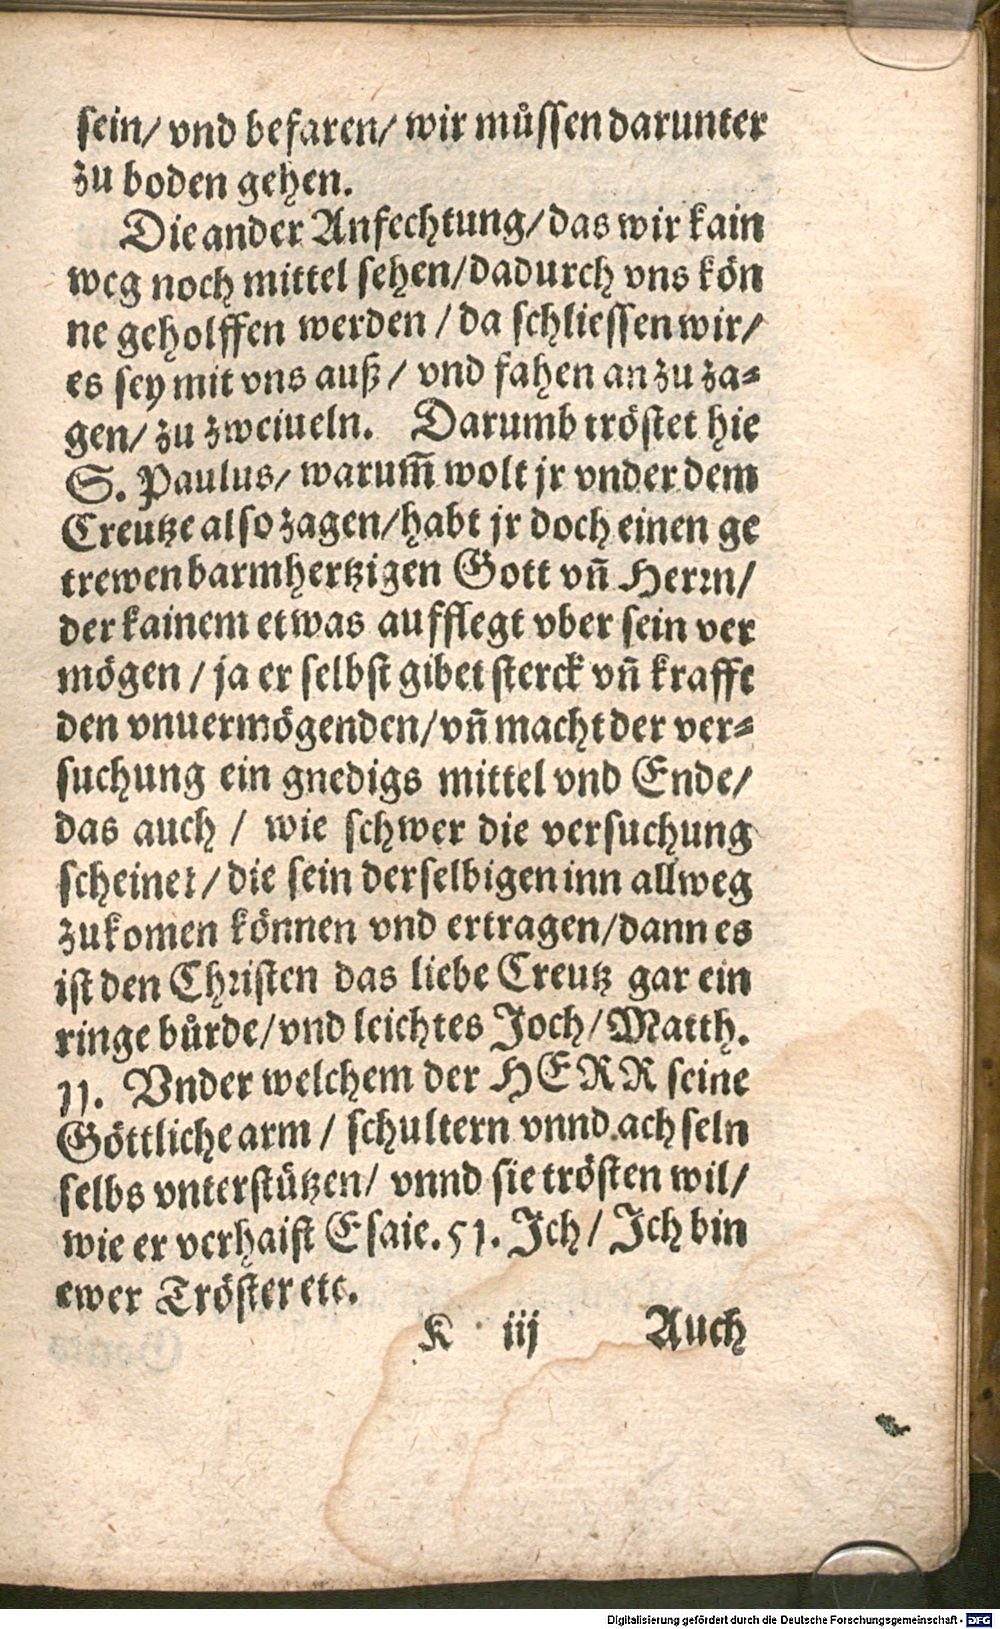 sein/ vnd befaren/ wir muͤssen darunter
zu boden gehen.
Die ander Anfechtung/ das wir kain
weg noch mittel sehen/ dadurch vns kön
ne geholffen werden / da schliessen wir/
es sey mit vns auß / vnd fahen an zu za⸗
gen/ zu zweiueln. Darumb tröstet hie
S. Paulus/ warum̃ wolt jr vnder dem
Creutze also zagen/ habt jr doch einen ge
trewen barmhertzigen Gott vñ Herrn/
der kainem etwas aufflegt vber sein ver
mögen / ja er selbst gibet sterck vñ krafft
den vnuermögenden/ vñ macht der ver⸗
suchung ein gnedigs mittel vnd Ende/
das auch / wie schwer die versuchung
scheinet / die sein derselbigen inn allweg
zukomen können vnd ertragen/ dann es
ist den Christen das liebe Creutz gar ein
ringe buͤrde/ vnd leichtes Joch/ Matth.
11. Vnder welchem der HERR seine
Göttliche arm / schultern vnnd achseln
selbs vnterstützen/ vnnd sie trösten wil/
wie er verhaist Esaie. 51. Jch/ Jch bin
ewer Tröster etc.
K iij Auch
Digitalisierung gefördert durch die Deutsche Forschungsgemeinschaft - DFG